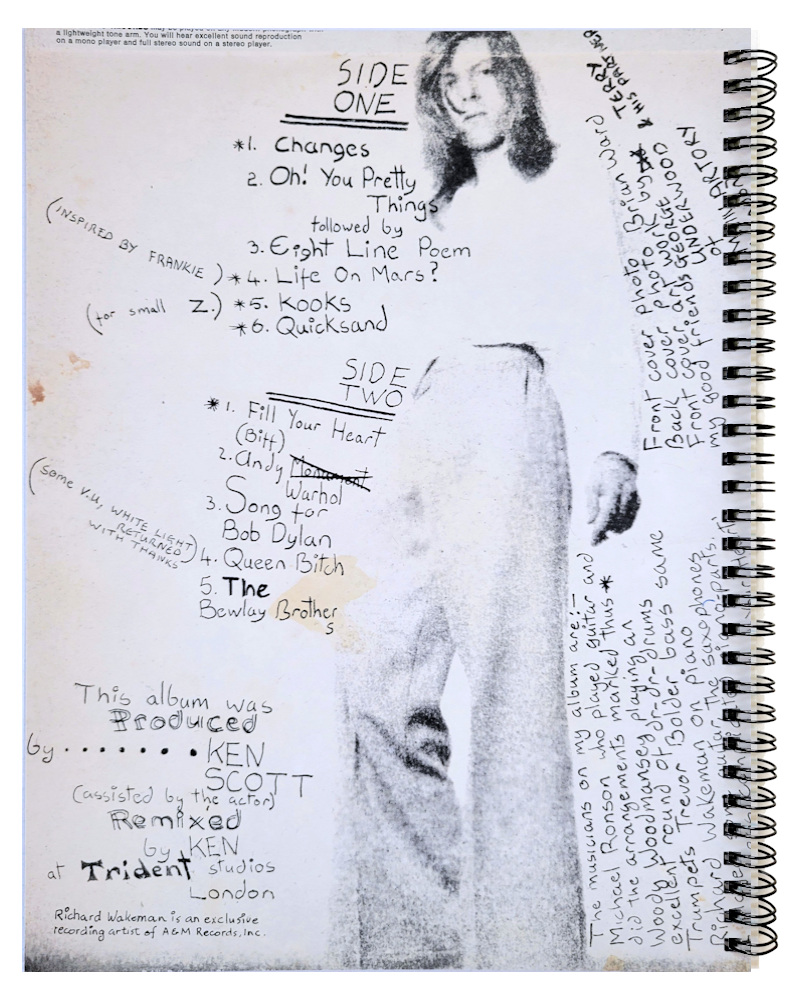 a lightweight tone arm. You will hear excellent sound reproduction
on a mono player and full stereo sound on a stereo player.
SIDE
ONE
*1. Changes
2. Oh! You Pretty
Things
followed by
3. Eight Line Poem
(INSPIRED BY FRANKIE) *4. Life On Mars?
(for small Z.) *5. Kooks
*6. Quicksand
SIDE
TWO
*1. Fill Your Heart
(Biff)
2. Andy Monument
Warhol
3. Song for
Bob Dylan
(Some V.U, WHITE LIGHT
RETURNED
WITH THANKS)
4. Queen Bitch
5. The
Bewlay Brother
s
This album was
Produced
by........KEN
SCOTT
(assisted by the actor)
Remixed
by KEN
at Trident studios
London
Richard Wakeman is an exclusive
recording artist of A&M Records, Inc.
Front cover photo Brian Ward
Back cover photo work by
Front cover art GEORGE UNDERWOOD
my good friends
TERRY
& HIS PARTNER
The musicians on my album are:—
Michael Ronson who played guitar and
did the arrangements marked thus*
Woody Woodmansey playing an
excellent round of dr-dr-drums
Trumpets Trevor Bolder bass same
Richard Wakeman on piano